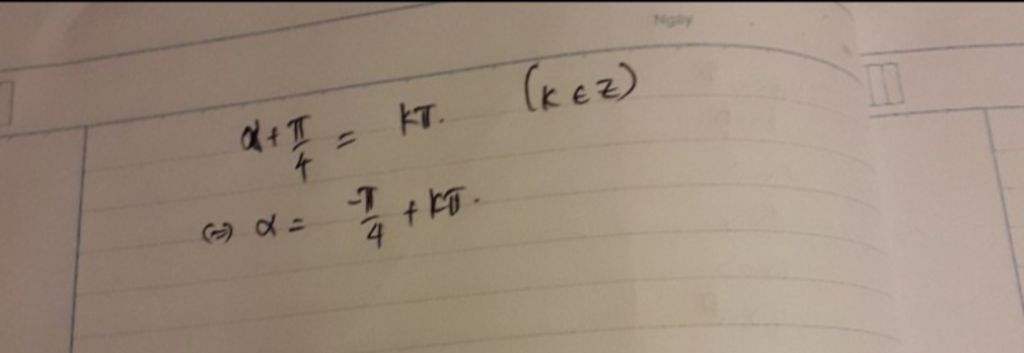 Ngày
α + π/4 = kπ. (k ∈ Z)
(=) α = -π/4 + kπ.